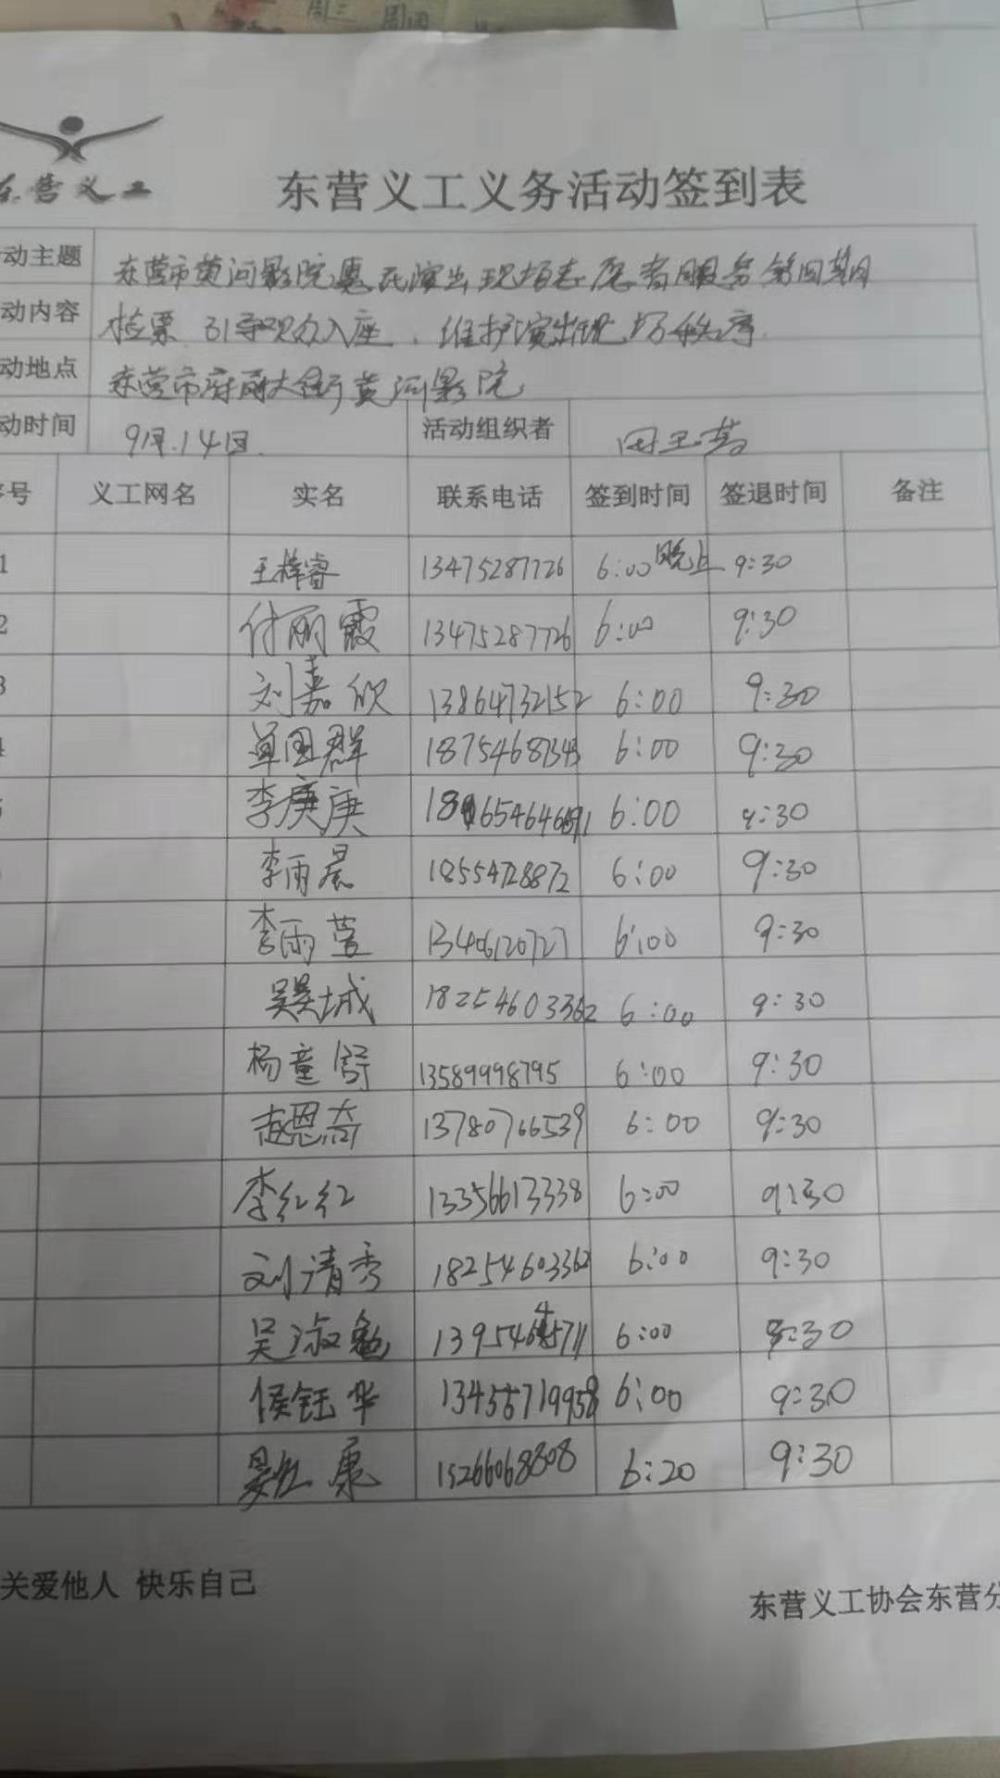 周三 周四
东营义工 东营义工义务活动签到表
动主题 东营市黄河影院惠民演出现场志愿者服务第四期
动内容 检票、引导观众入座、维护演出现场秩序
动地点 东营市府前大街黄河影院
动时间 9月.14日. 活动组织者 田玉
号 义工网名 实名 联系电话 签到时间 签退时间 备注
1 王梓睿 13475287726 6:00晚上 9:30
2 付丽霞 13475287726 6:00 9:30
3 刘嘉欣 13864732152 6:00 9:30
单国群 6:00 9:30
李庚庚 6:00 9:30
李雨晨 18554728872 6:00 9:30
李雨萱 13406120727 6:00 9:30
吴昊城 18254603362 6:00 9:30
杨童舒 13589998795 6:00 9:30
赵恩奇 13780766539 6:00 9:30
李红红 13356613338 6:00 9:30
刘清秀 18254603362 6:00 9:30
吴淑勉 6:00 9:30
侯钰华 6:00 9:30
康 15266068808 6:20 9:30
关爱他人 快乐自己
东营义工协会东营分